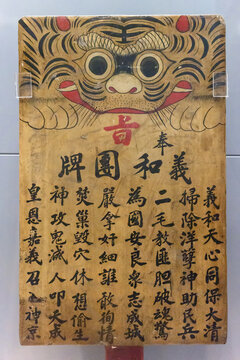 奉旨
義和團牌
義和天心同保大清
掃除洋孽神助民兵
二毛教匪胆破魂驚
為國安良眾志成城
嚴拿奸細誰敢徇情
焚巢毀穴休想偷生
神攻鬼滅人叩天成
皇恩嘉義召神京